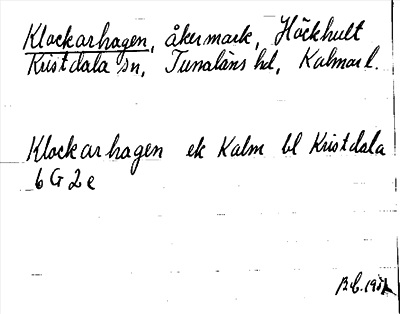 Klockarhagen, åkermark, Höckhult
Kristdala sn, Tunaläns hd, Kalmar l.
Klockarhagen ek Kalm bl Kristdala
6 G 2 e